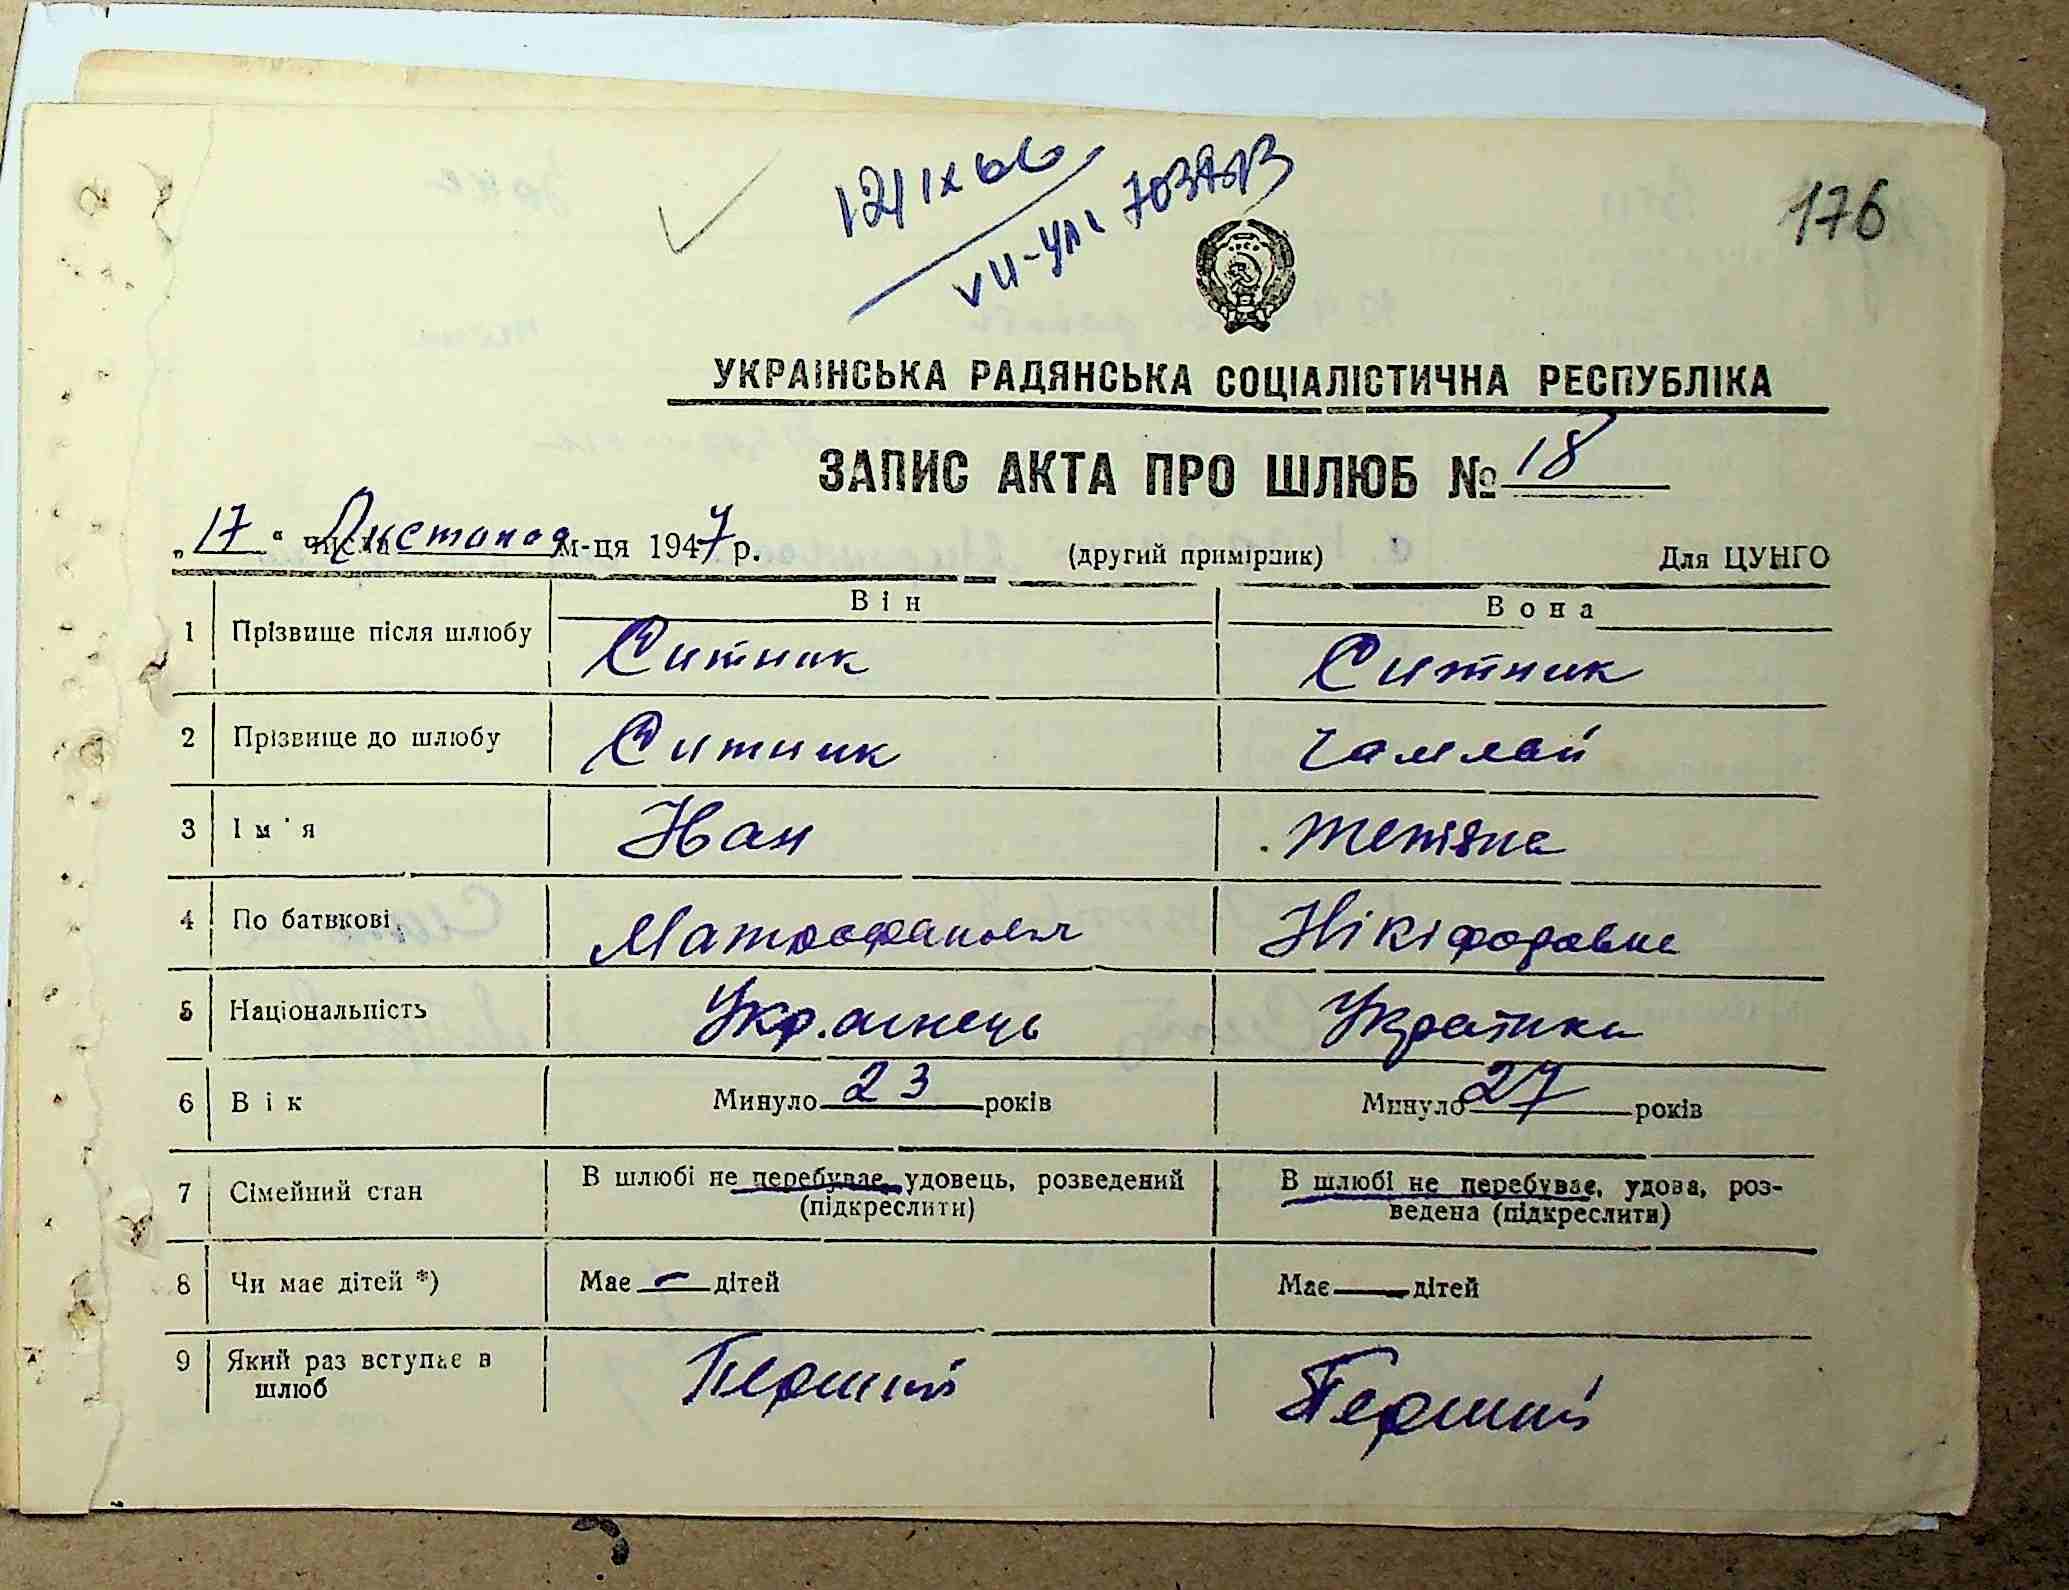 121 IX 66
VII-УЛ 703985
176
УКРАЇНСЬКА РАДЯНСЬКА СОЦІАЛІСТИЧНА РЕСПУБЛІКА
ЗАПИС АКТА ПРО ШЛЮБ № 18
„17“ числа Листопад м-ця 1947 р. (другий примірник) Для ЦУНГО
Він Вона
1 Прізвище після шлюбу Ситник Ситник
2 Прізвище до шлюбу Ситник Гамлай
3 Ім'я Иван Тетяна
4 По батькові Матрофанович Нікіфоровна
5 Національність Укр.аинець Украінка
6 Вік Минуло 23 років Минуло 27 років
7 Сімейний стан В шлюбі не перебуває, удовець, розведений В шлюбі не перебуває, удова, роз-
(підкреслити) ведена (підкреслити)
8 Чи має дітей *) Має — дітей Має — дітей
9 Який раз вступає в Перший Перший
шлюб